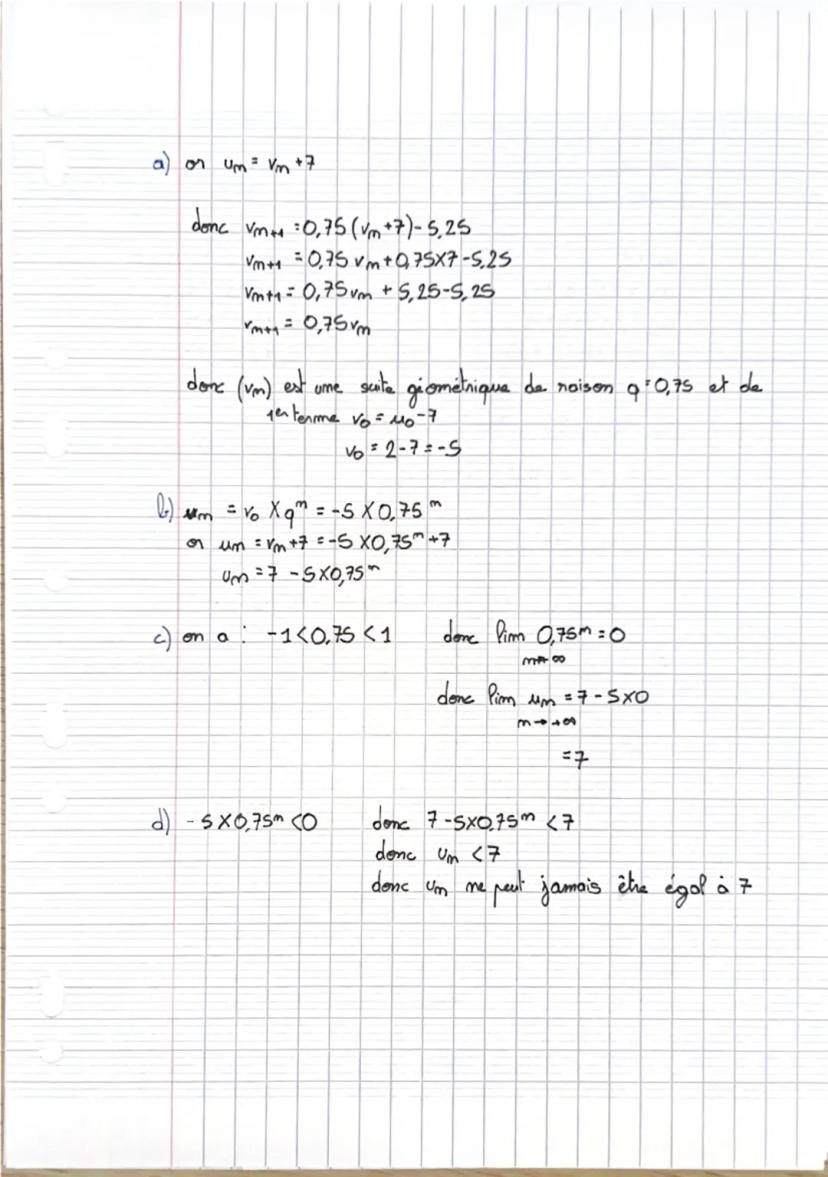 a) or um = vm + 7
donc vm+1 = 0,75 (vm + 7) - 5,25
vm+1 = 0,75 vm + 0,75 × 7 - 5,25
vm+1 = 0,75 vm + 5,25 - 5,25
vm+1 = 0,75 vm
donc (vm) est une suite géométrique de raison q = 0,75 et de
1er terme v0 = u0 - 7
v0 = 2 - 7 = -5
b) um = v0 × q^m = -5 × 0,75^m
or um = vm + 7 = -5 × 0,75^m + 7
um = 7 - 5 × 0,75^m
c) on a : -1 < 0,75 < 1 donc lim 0,75^m = 0
m→∞
donc lim um = 7 - 5 × 0
m → +∞
= 7
d) -5 × 0,75^m < 0 donc 7 - 5 × 0,75^m < 7
donc um < 7
donc um ne peut jamais être égal à 7